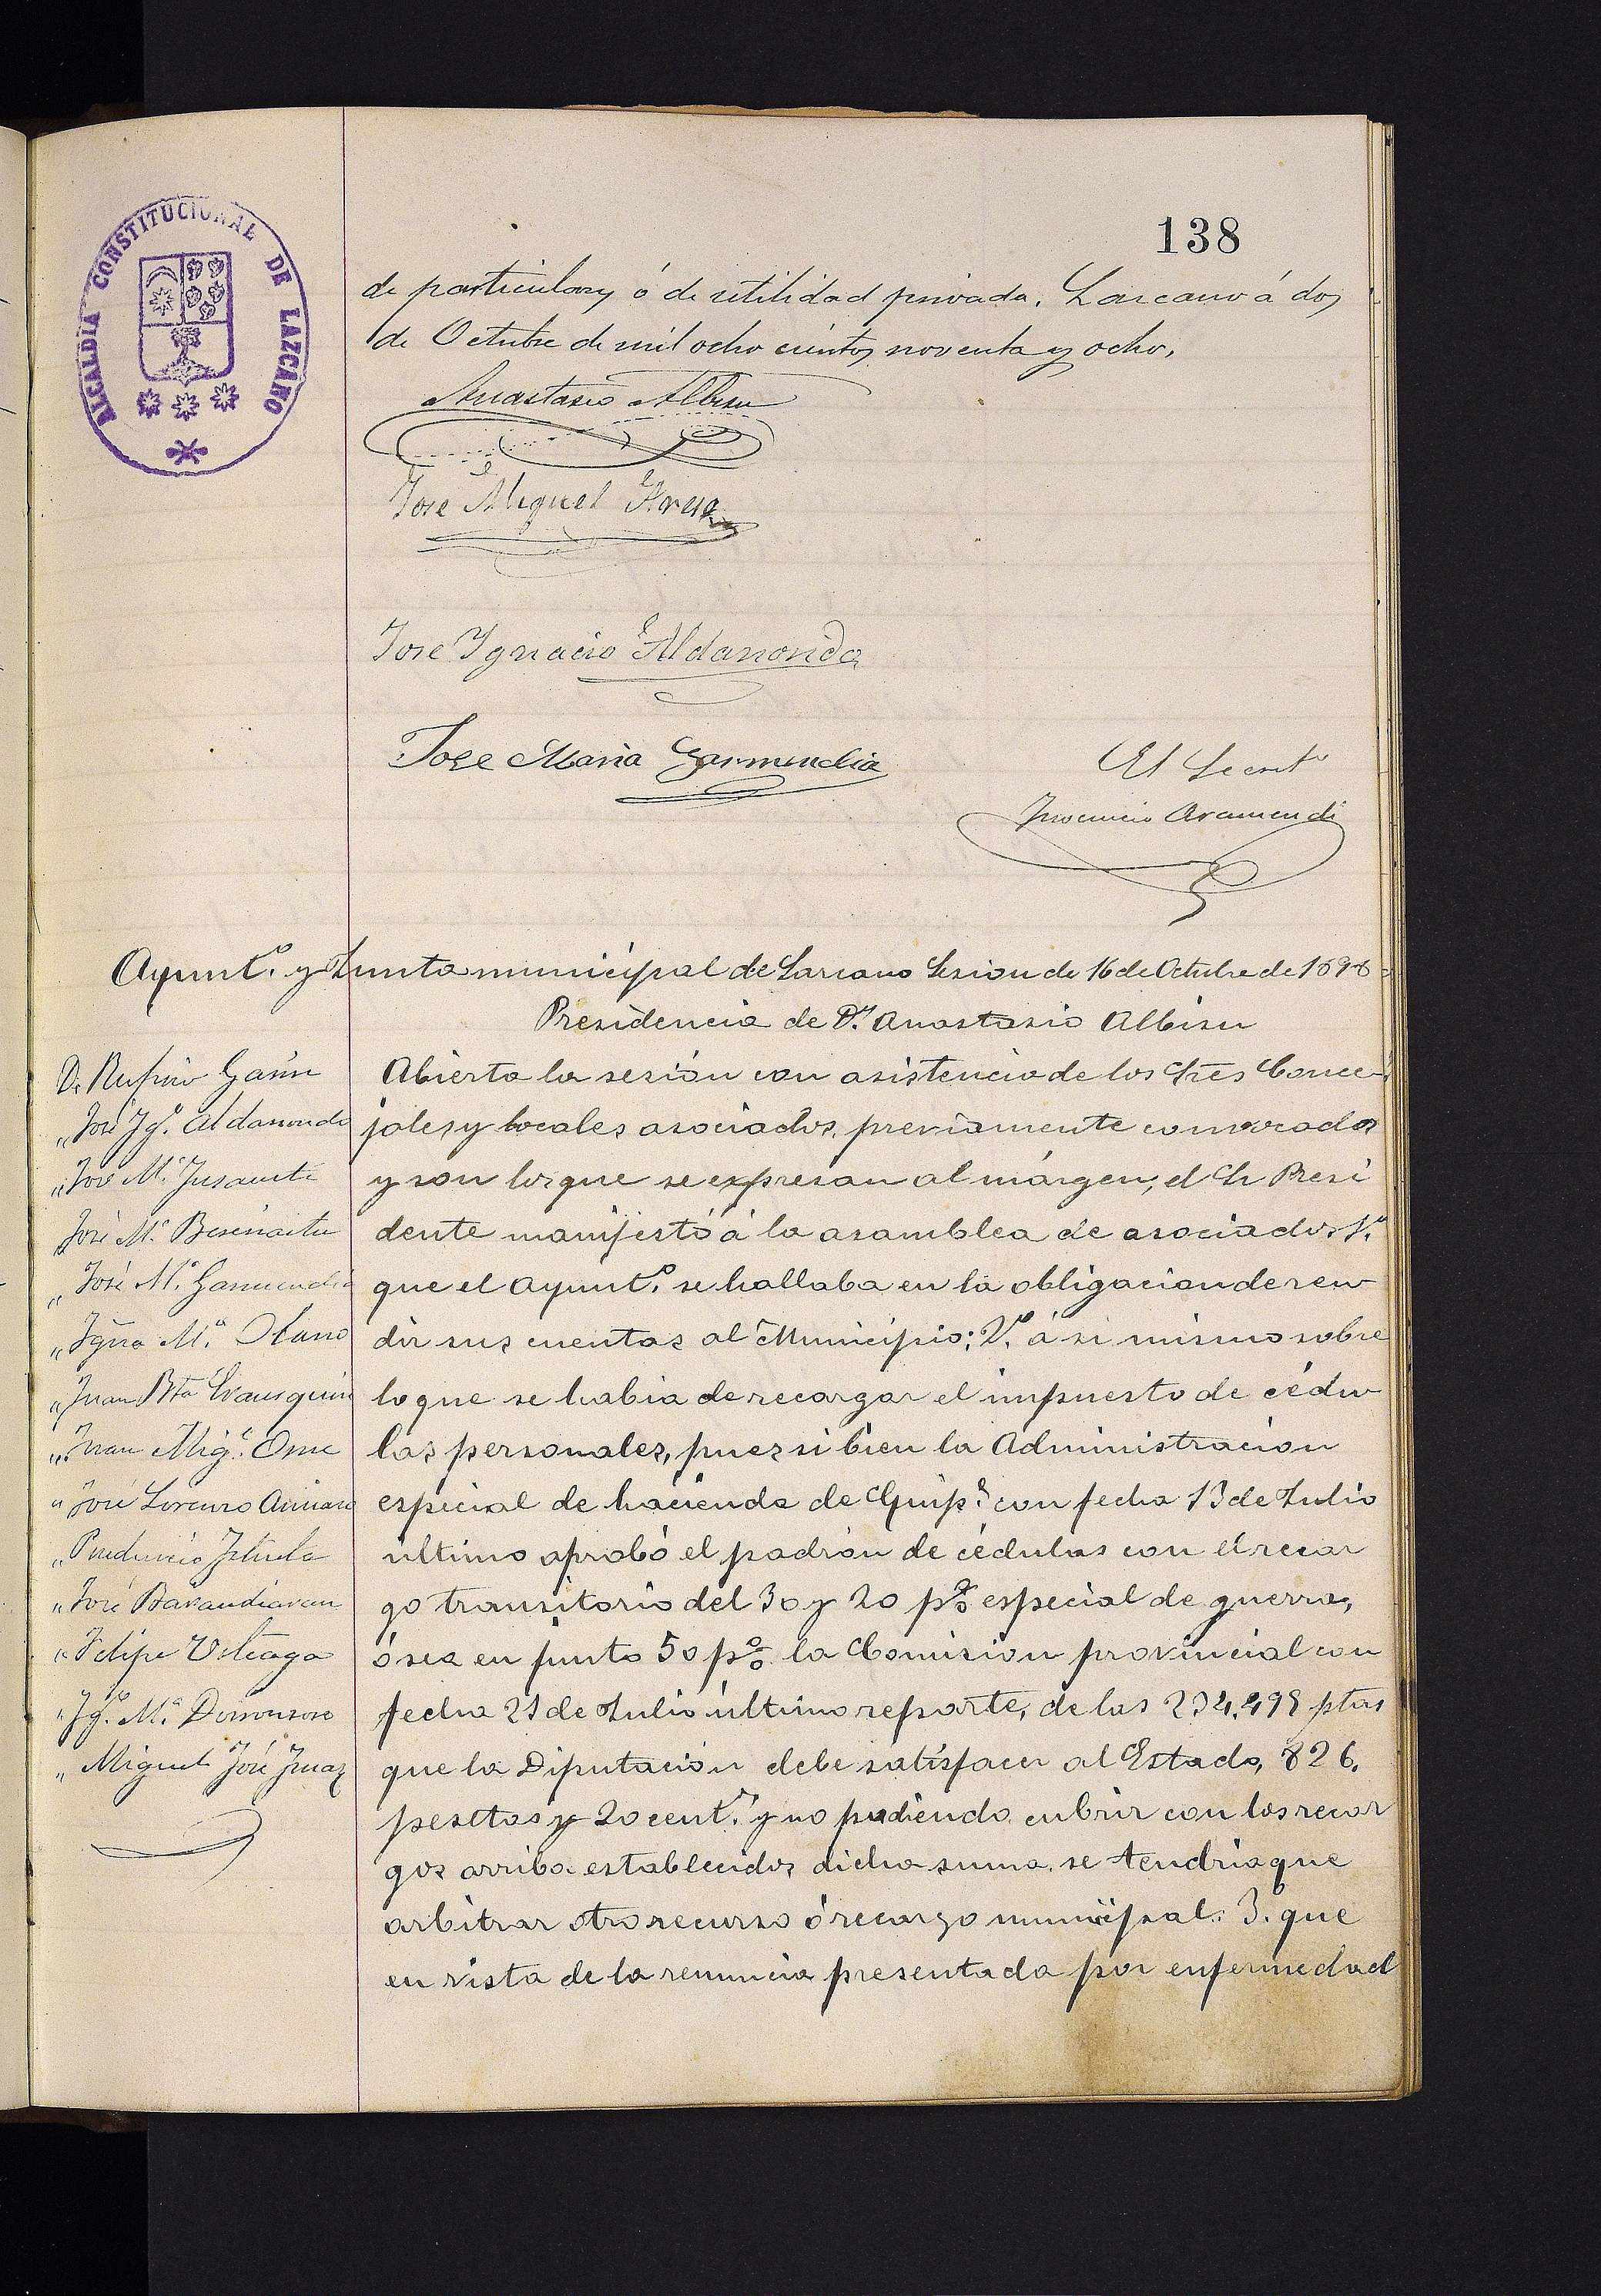 138
ALCALDIA CONSTITUCIONAL DE LAZCANO
de particulares ó de utilidad privada. Lazcano á dos
de Octubre de mil ocho cientos noventa y ocho.
Anastasio Albisu
José Miguel
Jose Ygnacio Aldanondo
Jose Maria Garmendia
El Secret.º
Inocencio Aramendi
Ayunt.º y Junta municipal de Lazcano Sesion de 16 de Octubre de 1898
Presidencia de D.n Anastasio Albisu
D. Rufino Garin
" José Ig.º Aldanondo
" José M.ª Insausti
José M.ª
" José M.ª Garmendia
" Ygna M.ª Olano
" Juan Bta
" Juan Mig.l
" José Lorenzo
" Prudencio
" José Barandiaran
" Felipe Urteaga
" Ig.º M.ª Dorronsoro
" Miguel José
Abierta la sesión con asistencia de los Sres Conce-
jales y vocales asociados, previamente convocados
y son los que se expresan al márgen, el Sr Presi
dente manifestó á la asamblea de asociados 1.º
que el Ayunt.º se hallaba en la obligacion de ren-
dir sus cuentas al Municipio: 2.º á si mismo sobre
lo que se habia de recargar el impuesto de cédu-
las personales, pues si bien la Administracion
especial de hacienda de Guip.a con fecha 13 de Julio
último aprobó el padrón de cédulas con el recar
go transitorio del 30 y 20 p% especial de guerra,
ó sea en junto 50 p% la Comision provincial con
fecha 21 de Julio último reparte, de las 234,498 ptas
que la Diputación debe satisfacer al Estado, 826.
pesetas y 20 cent.s y no pudiendo cubrir con los recar
gos arriba establecidos dicha suma se tendria que
arbitrar otro recurso ó recargo municipal: 3.º que
en vista de la renuncia presentada por enfermedad